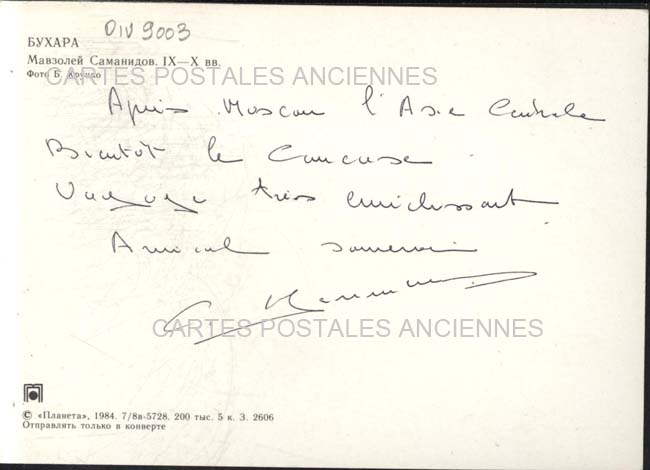 DIV 9003
БУХАРА
Мавзолей Саманидов. IX—X вв.
Фото Б. Круцко
CARTES POSTALES ANCIENNES
Après Moscou l'Asie Centrale
Bientôt le Caucase
Voyage très enrichissant
Amical souvenir
CARTES POSTALES ANCIENNES
© «Планета», 1984. 7/8в-5728. 200 тыс. 5 к. З. 2606
Отправлять только в конверте